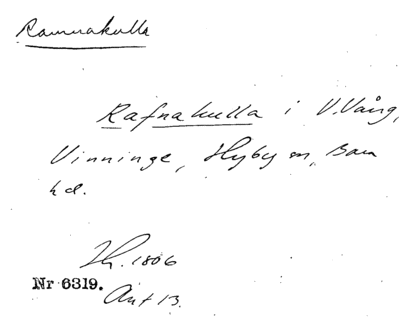 Ramnakulla
Rafnakulla i V.Vång,
Vinninge, Hyby sn, Bara
hd.
Lh. 1806
Nr 6319. Akt 13.